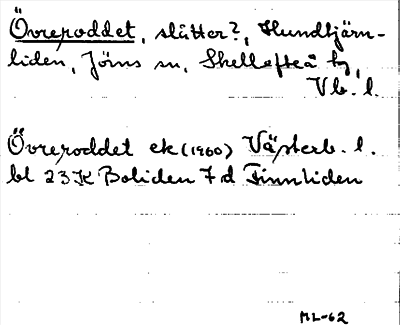 Övreroddet, slåtter?, Hundtjärn-
liden, Jörns sn, Skellefteå tg,
Vb. l.
Övreroddet ek (1960) Västerb. l.
bl 23K Boliden 7d Finnliden
ML-62